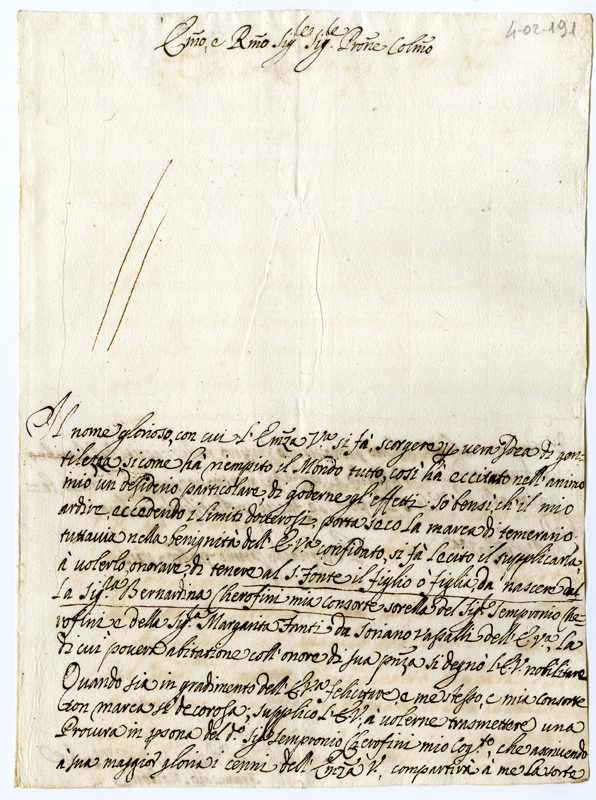 4-02-191
Emo, e Rmo Sigre Sigre Prone Colmo
Il nome glorioso, con cui L'Emza Vra si fà scorgere p vera Idea di gen-
tilezza sicome hà riempito il Mondo tutto, così hà eccitato nell'animo
mio un desiderio particolare di goderne gl'effetti. So bensi, ch'il mio
ardire, eccedendo i limiti doverosi, porta seco La marca di temerario.
tuttavia nella benignità dell'E.Vra confidato, si fà Lecito il supplicarla
à volerlo onorare di tenere al S. Fonte il figlio ò figlia, da nascere dal
La Sigra Bernardina Cherofini mia consorte sorella del Sigr Sempronio Che-
rofini e della Sigra Margarita Fanti da Soriano Vassalli dell'E.Vra, La
di cui povera abitatione coll'onore di sua pnza si degnò L'E.V. nobilitare
Quando sia in gradimento dell'E.Vra felicitare, e me stesso, e mia consorte
con marca sì decorosa; supplico L'E.V. à volerne trasmettere una
Procura in psona del do Sigr Sempronio Cherofini mio Cogto, che annuendo
à sua maggior gloria i cenni dell'Emza V. compartirà à me La sorte